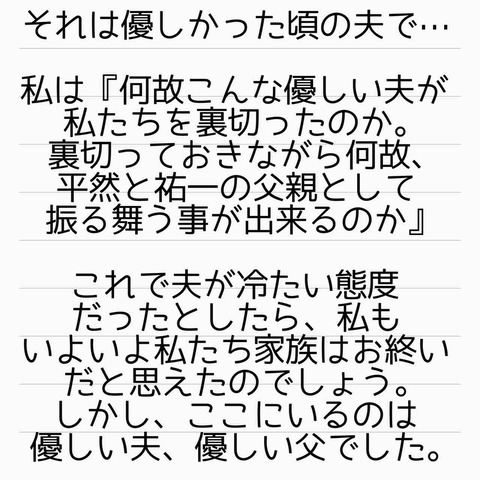 それは優しかった頃の夫で…
私は『何故こんな優しい夫が
私たちを裏切ったのか。
裏切っておきながら何故、
平然と祐一の父親として
振る舞う事が出来るのか』
これで夫が冷たい態度
だったとしたら、私も
いよいよ私たち家族はお終い
だと思えたのでしょう。
しかし、ここにいるのは
優しい夫、優しい父でした。